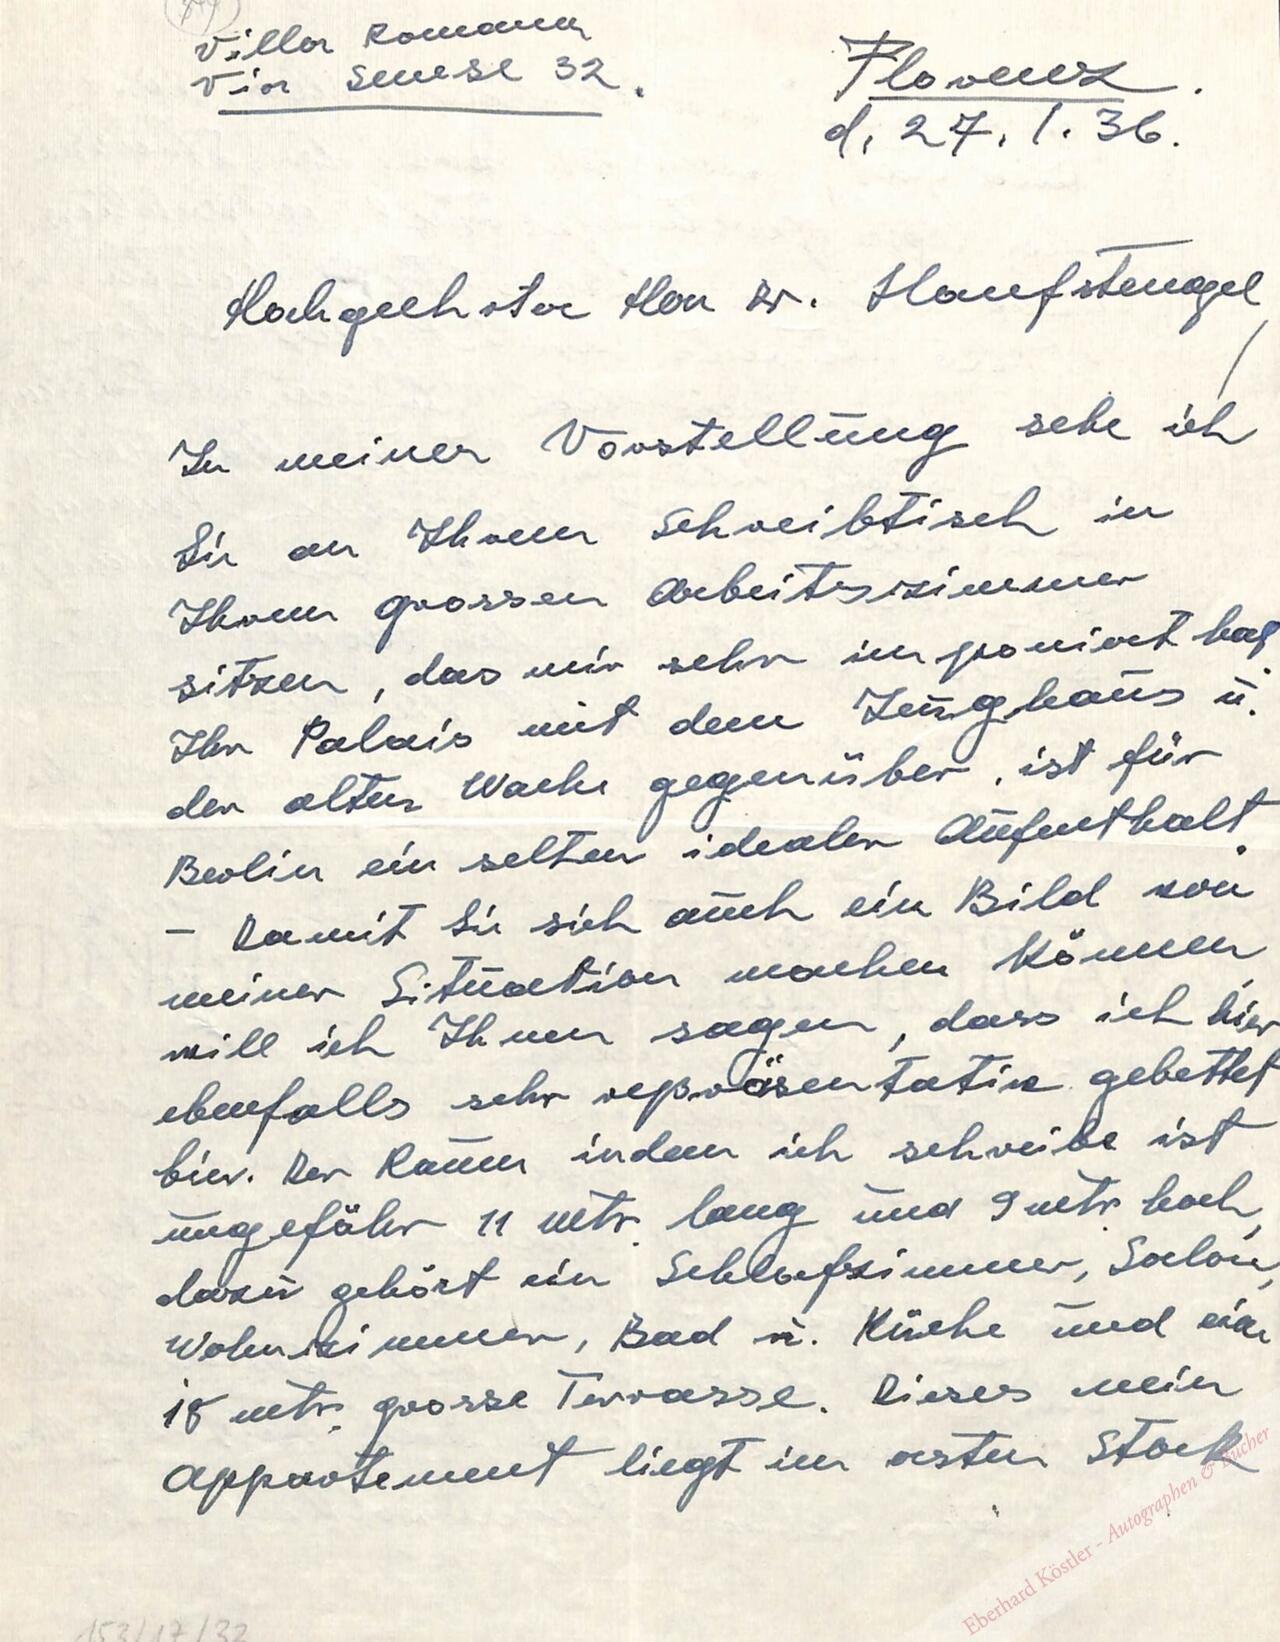 Villa Romana
Via Senese 32.
Florenz.
d. 27. 1. 36.
Hochgeehrter Herr Dr. Hanfstengel,
In meiner Vorstellung sehe ich
Sie an Ihrem Schreibtisch in
Ihrem grossen Arbeitszimmer
sitzen, das mir sehr imponiert hat.
Ihr Palais mit dem Zeughaus u.
der alten Wache gegenüber, ist für
Berlin ein selten idealer Aufenthalt.
– Damit Sie sich auch ein Bild von
meiner Situation machen können,
will ich Ihnen sagen, dass ich hier
ebenfalls sehr repräsentativ gebettet
bin. Der Raum indem ich schreibe ist
ungefähr 11 mtr. lang und 9 mtr. hoch,
dazu gehört ein Schlafzimmer, Salon,
Wohnzimmer, Bad u. Küche und eine
18 mtr. grosse Terrasse. Dieses mein
Appartement liegt im ersten Stock
Eberhard Köstler - Autographen & Bücher
153/17/32